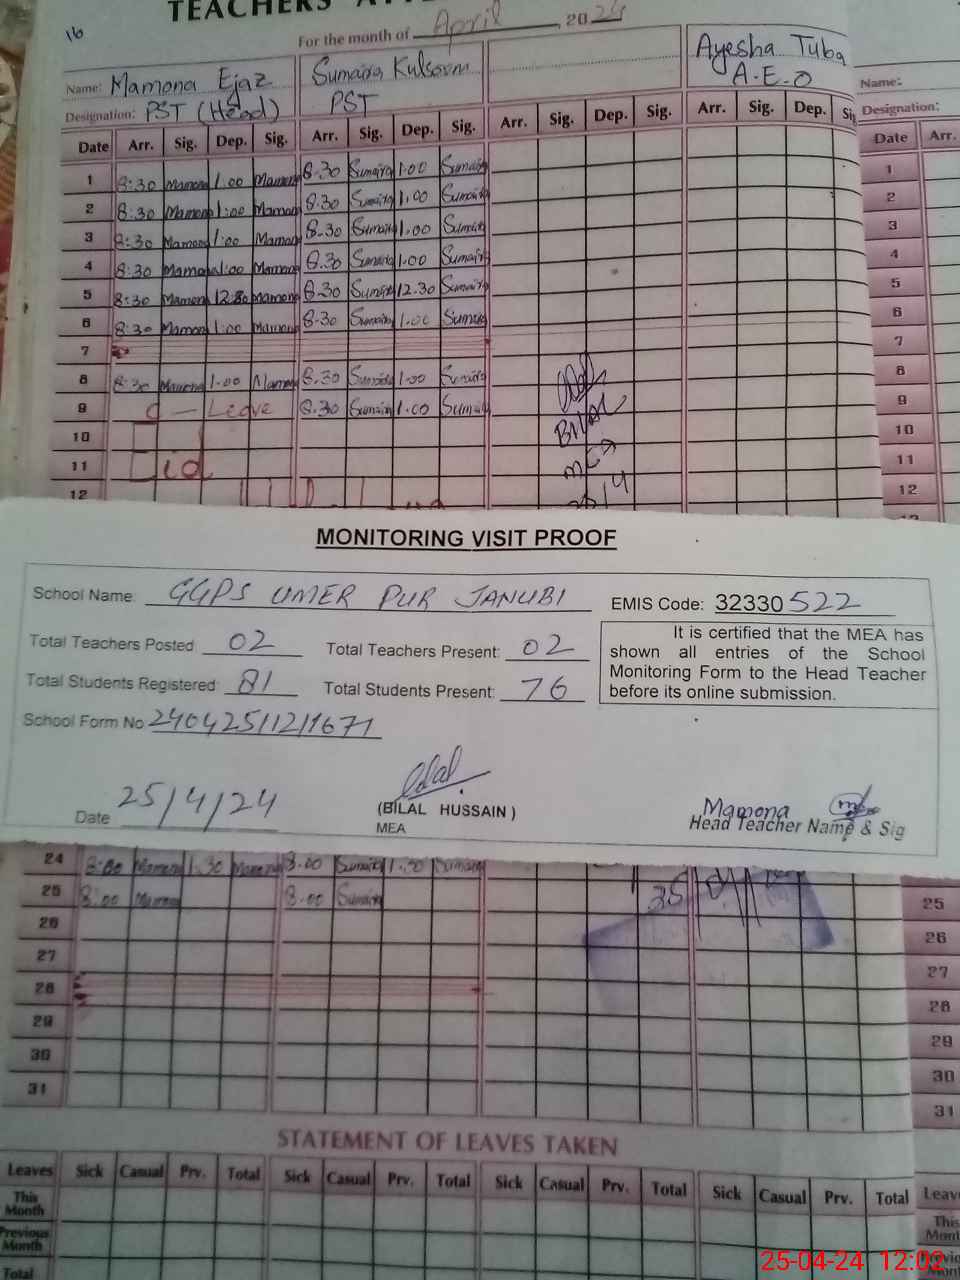 16
TEACHERS
For the month of April, 2024
Name: Mamona Ejaz Sumaira Kulsoom Ayesha Tuba Name:
Designation: PST (Head) PST A.E.O Designation:
Date Arr. Sig. Dep. Sig. Arr. Sig. Dep. Sig. Arr. Sig. Dep. Sig. Arr. Sig. Dep. Date Arr.
1 8:30 Mamona 1.00 Mamona 8.30 Sumaira 1.00 Sumaira 1
2 8:30 Mamona 1:00 Mamona 8.30 Sumaira 1.00 Sumaira 2
3 8:30 Mamona 1:00 Mamona 8.30 Sumaira 1.00 Sumaira 3
4 8:30 Mamona 1:00 Mamona 8.30 Sumaira 1.00 Sumaira 4
5 8:30 Mamona 12.30 Mamona 8.30 Sumaira 12.30 Sumaira 5
6 8:30 Mamona 1:00 Mamona 8.30 Sumaira 1.00 Sumaira 6
7 7
8 8:30 Mamona 1.00 Mamona 8.30 Sumaira 1.00 Sumaira 8
9 C — Leave 8.30 Sumaira 1.00 Sumaira 9
10 BILAL 10
11 Eid 11
12 12
MONITORING VISIT PROOF
School Name: GGPS UMER PUR JANUBI EMIS Code: 32330522
Total Teachers Posted 02 Total Teachers Present: 02
Total Students Registered: 81 Total Students Present: 76
It is certified that the MEA has
shown all entries of the School
Monitoring Form to the Head Teacher
before its online submission.
School Form No 240425/121/1671
Date 25/4/24
(BILAL HUSSAIN)
MEA
Mamona
Head Teacher Name & Sig
24 8:00 Mamona 1.30 Mamona 8.00 Sumaira 1.30 Sumaira
25 8.00 Mamona 8.00 Sumaira 25
26 26
27 27
28 28
29 29
30 30
31 31
STATEMENT OF LEAVES TAKEN
Leaves Sick Casual Prv. Total Sick Casual Prv. Total Sick Casual Prv. Total Sick Casual Prv. Total
This Month
Previous Month
Total
25-04-24 12:02